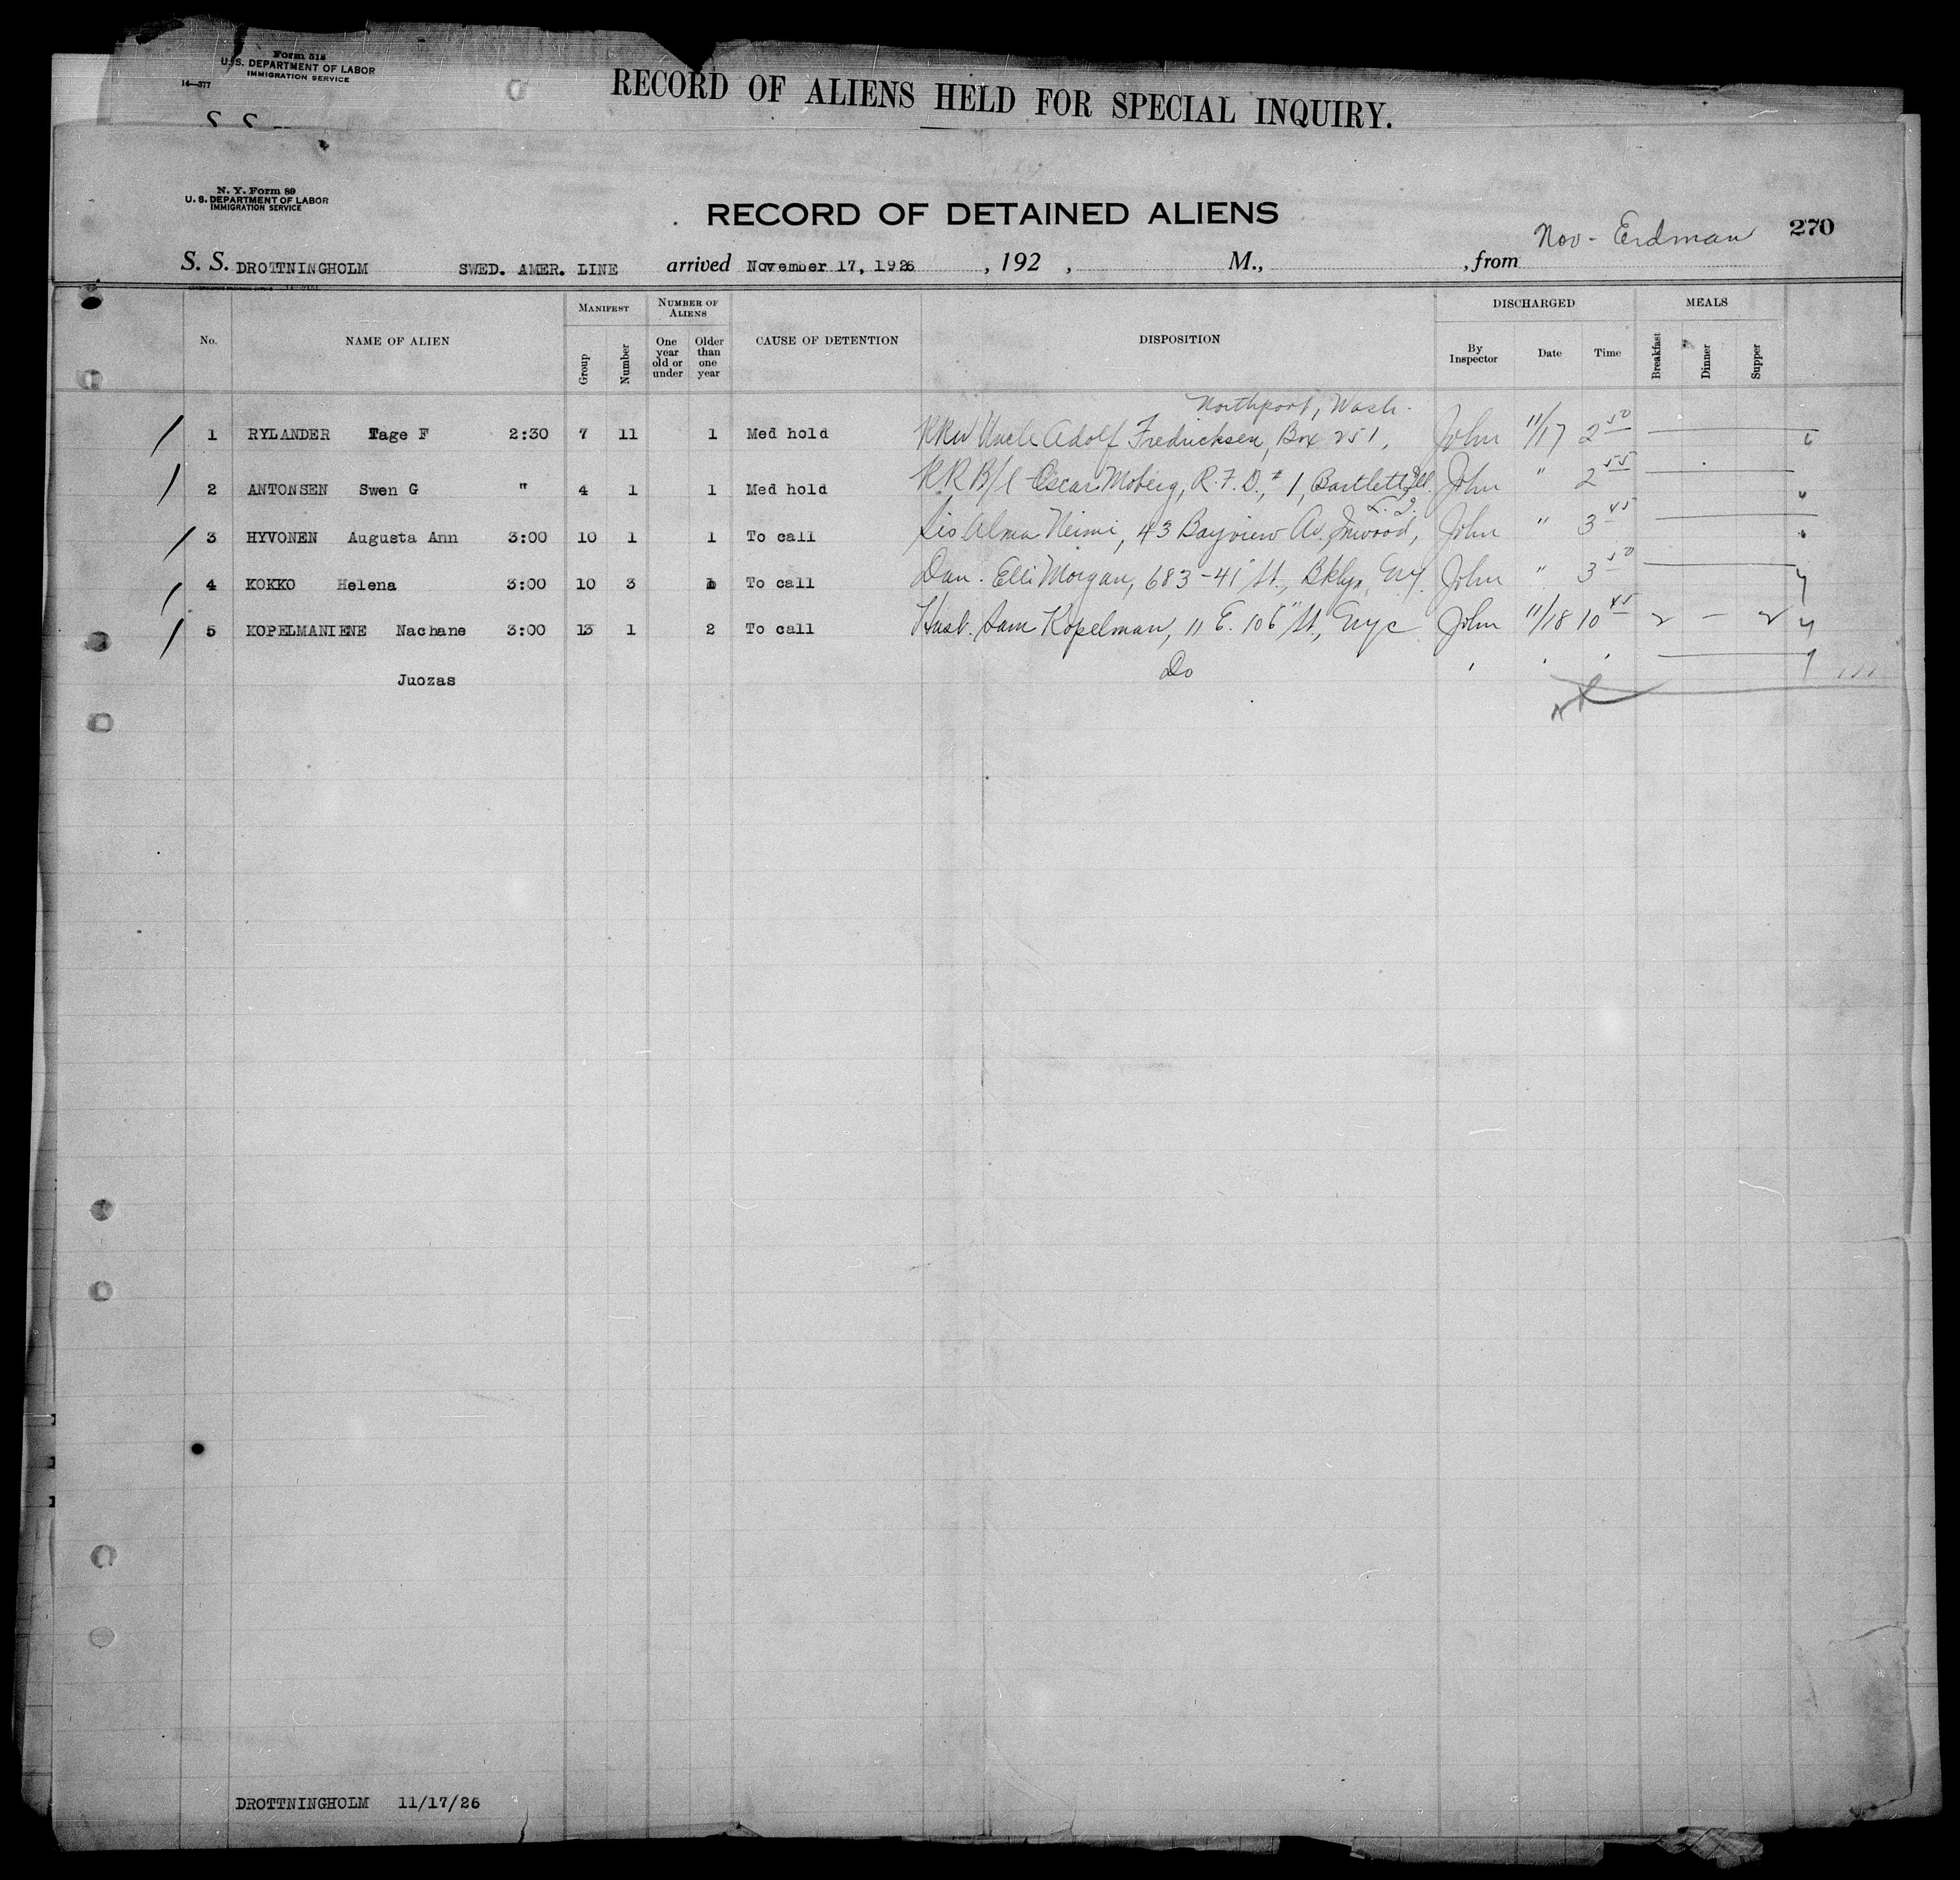 Form 518
U. S. DEPARTMENT OF LABOR
IMMIGRATION SERVICE
14—377
RECORD OF ALIENS HELD FOR SPECIAL INQUIRY.
S. S.
N. Y. Form 89
U. S. DEPARTMENT OF LABOR
IMMIGRATION SERVICE
RECORD OF DETAINED ALIENS
Nov - Erdman 270
S. S. DROTTNINGHOLM SWED. AMER. LINE arrived November 17, 1926 , 192 , M., , from
No. NAME OF ALIEN MANIFEST Group Number NUMBER OF ALIENS One year old or under Older than one year CAUSE OF DETENTION DISPOSITION DISCHARGED By Inspector Date Time MEALS Breakfast Dinner Supper
Northport, Wash.
1 RYLANDER Tage F 2:30 7 11 1 Med hold Uncle Adolf Fredricksen, Box 251, John 11/17 2 50
2 ANTONSEN Swen G " 4 1 1 Med hold RR B/l Oscar Moberg, R.F.D. # 1, Bartlett, Ill. John " 2 55
L. I.
3 HYVONEN Augusta Ann 3:00 10 1 1 To call Sis Alma Neimi, 43 Bayview Av., Inwood, John " 3 45
4 KOKKO Helena 3:00 10 3 1 To call Dau. Elli Morgan, 683-41" St., Bklyn, NY. John " 3 50
5 KOPELMANIENE Nachane 3:00 13 1 2 To call Husb. Sam Kopelman, 11 E. 106" St., NYC John 11/18 10 45 2 — 2
Juozas Do " " "
DROTTNINGHOLM 11/17/26